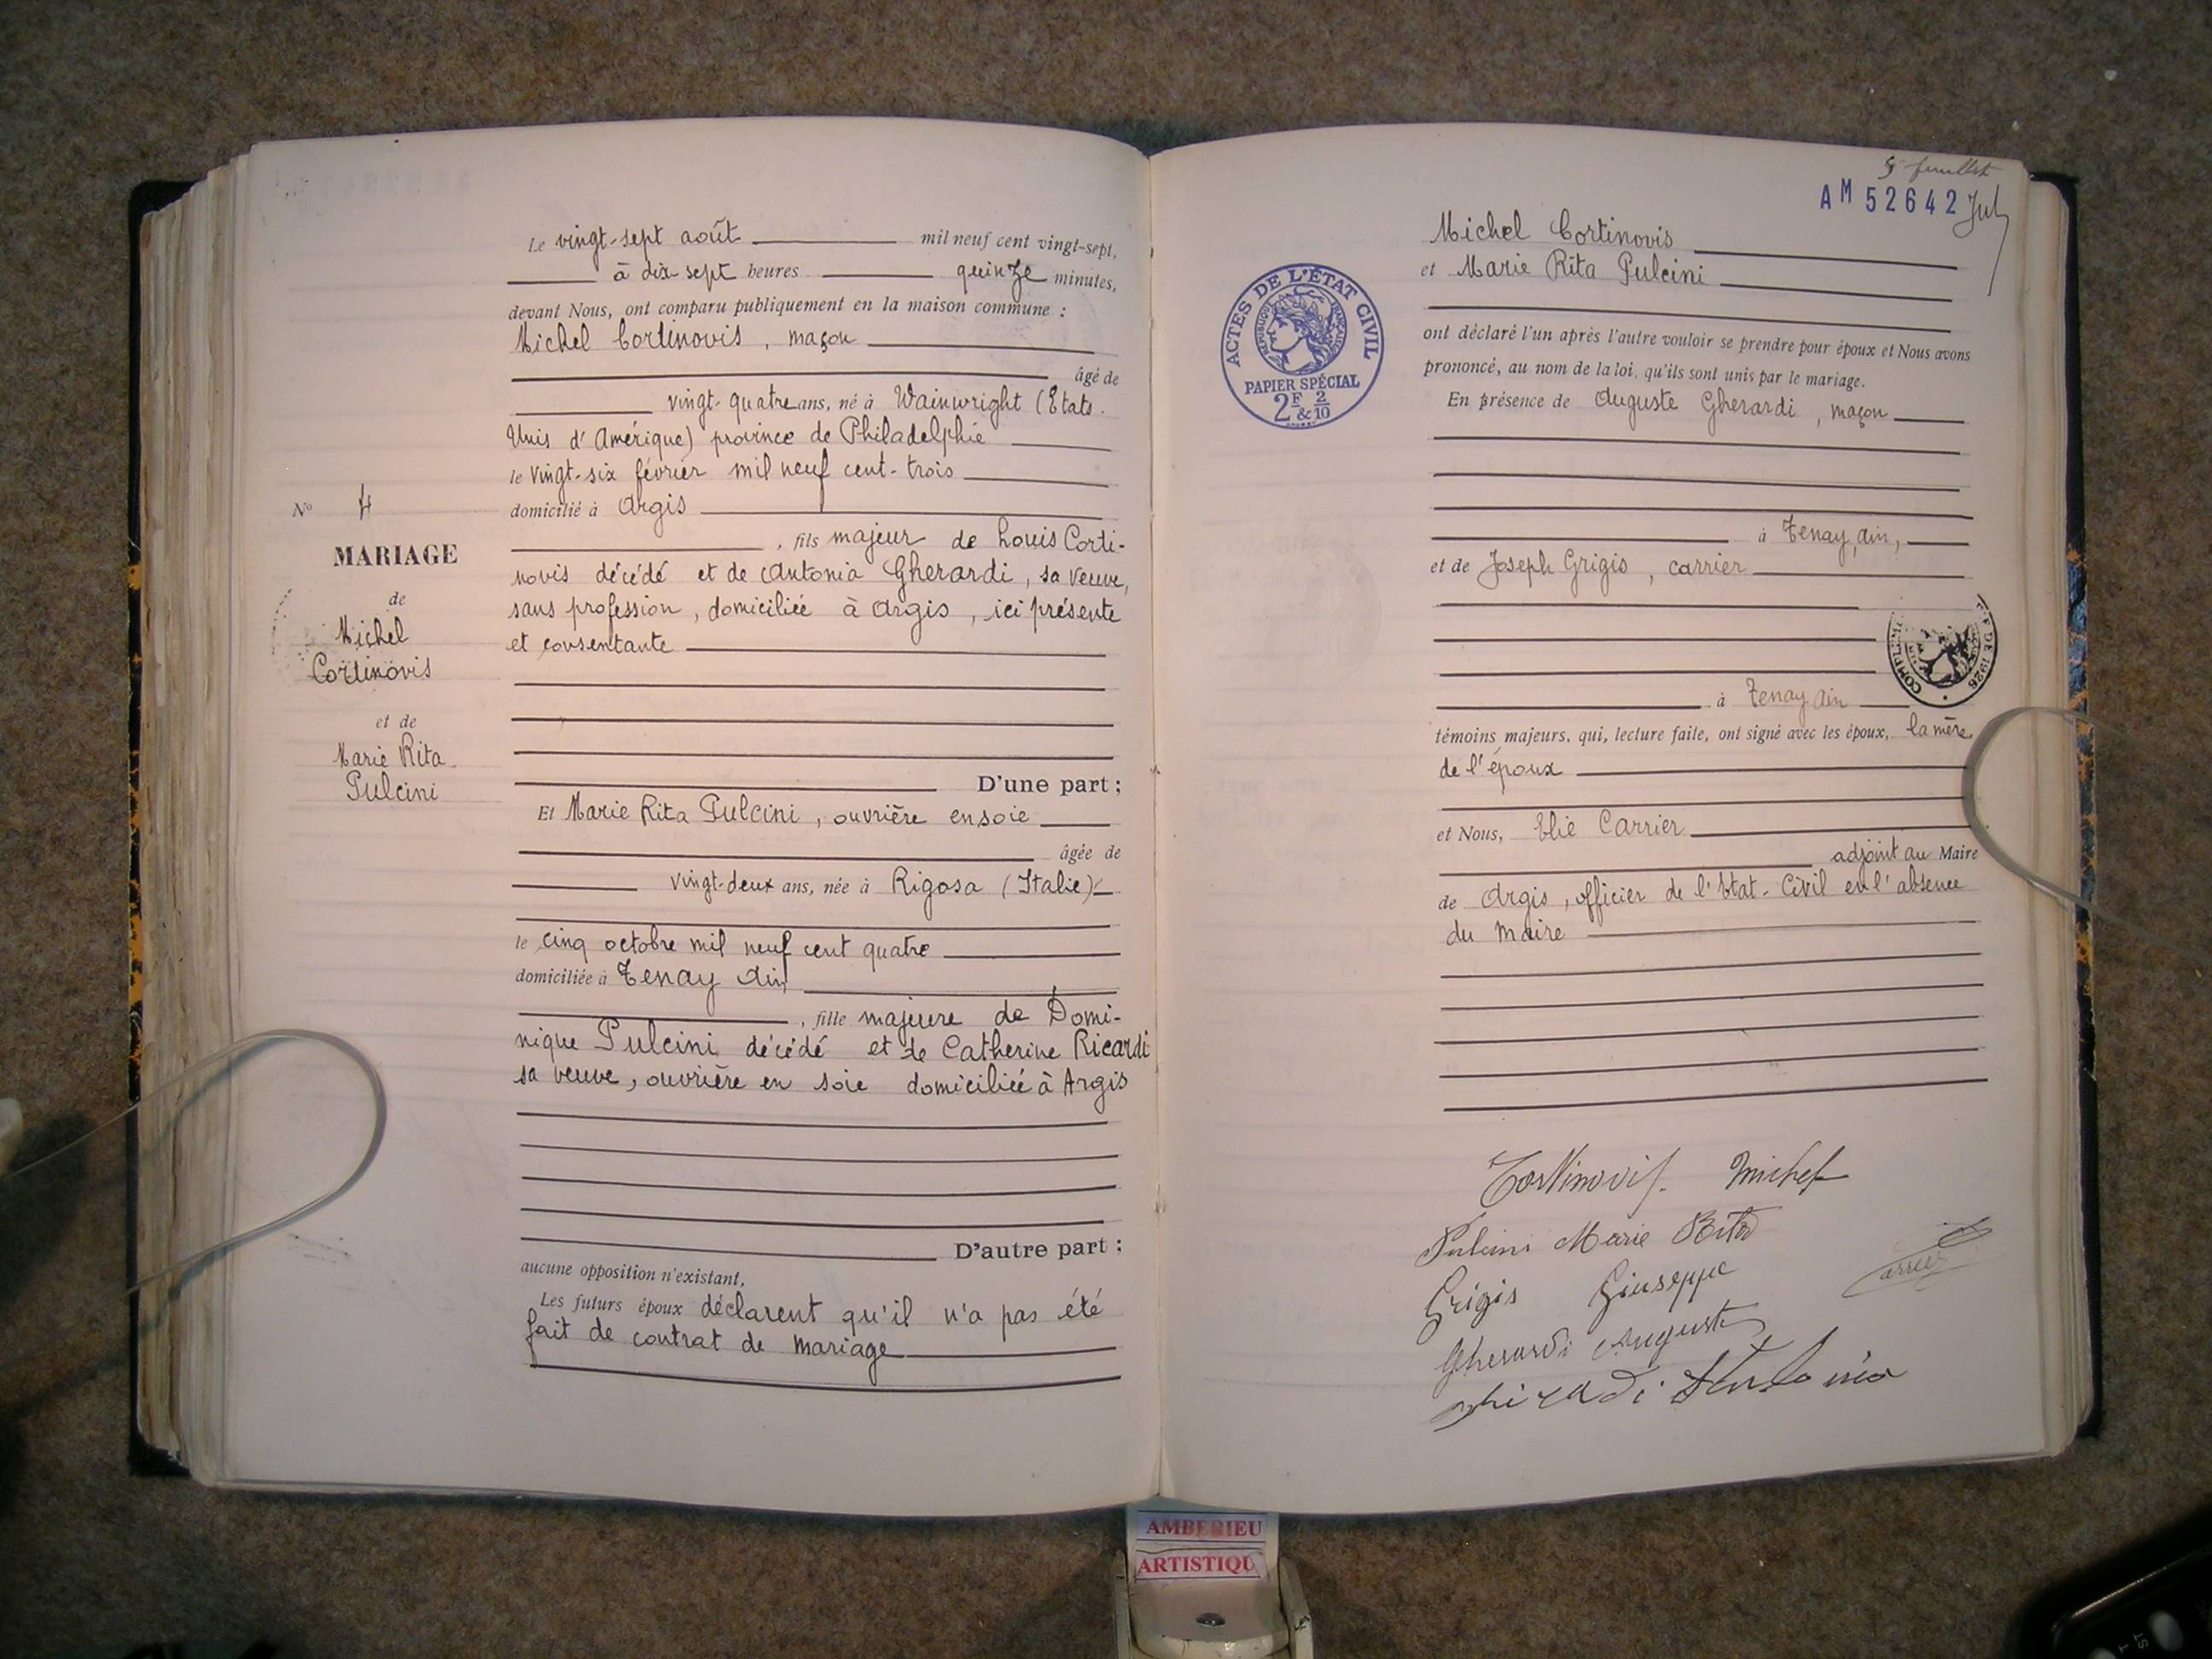 Le vingt-sept août mil neuf cent vingt-sept,
à dix-sept heures quinze minutes,
devant Nous, ont comparu publiquement en la maison commune :
Michel Cortinovis, maçon
âgé de
vingt-quatre ans, né à Wainwright (Etats-
Unis d'Amérique) province de Philadelphie
le vingt-six février mil neuf cent-trois
domicilié à Argis
, fils majeur de Louis Corti-
novis décédé et de Antonia Gherardi, sa veuve,
sans profession, domiciliée à Argis, ici présente
et consentante
D'une part ;
Et Marie Rita Pulcini, ouvrière en soie
âgée de
vingt-deux ans, née à Rigosa (Italie)
le cinq octobre mil neuf cent quatre
domiciliée à Tenay Ain
, fille majeure de Domi-
nique Pulcini décédé et de Catherine Ricardi
sa veuve, ouvrière en soie domiciliée à Argis
D'autre part ;
aucune opposition n'existant,
Les futurs époux déclarent qu'il n'a pas été
fait de contrat de mariage
N° 4
MARIAGE
de
Michel
Cortinovis
et de
Marie Rita
Pulcini
5e feuillet
AM 52642
ACTES DE L'ÉTAT CIVIL
RÉPUBLIQUE FRANÇAISE
PAPIER SPÉCIAL
2F & 2/10
Michel Cortinovis
et Marie Rita Pulcini
ont déclaré l'un après l'autre vouloir se prendre pour époux et Nous avons
prononcé, au nom de la loi, qu'ils sont unis par le mariage.
En présence de Auguste Gherardi, maçon
à Tenay, Ain,
et de Joseph Grigis, carrier
DE 1926
à Tenay Ain
témoins majeurs, qui, lecture faite, ont signé avec les époux, la mère
de l'époux
et Nous, Elie Carrier
adjoint au Maire
de Argis, officier de l'Etat-Civil en l'absence
du Maire
Cortinovis Michel
Pulcini Marie Rita
Carrier
Grigis Giuseppe
Gherardi Auguste
Ghirardi Antonia
AMBERIEU
ARTISTIQU